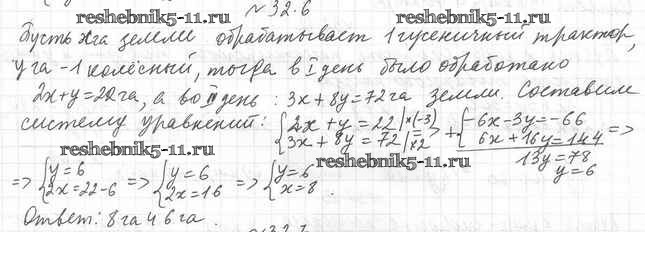 №32.6
reshebnik5-11.ru reshebnik5-11.ru
Пусть xга земли обрабатывает 1 гусеничный трактор,
y га - 1 колёсный, тогда в I день было обработано
2x+y=22га, а во II день: 3x+8y=72га земли. Составим
систему уравнений: {2x+y=22|×(-3) 3x+8y=72|×2 => +{-6x-3y=-66 6x+16y=144 =>
13y=78
y=6
reshebnik5-11.ru reshebnik5-11.ru
=> {y=6 2x=22-6 => {y=6 2x=16 => {y=6 x=8.
Ответ: 8га и 6га.
reshebnik5-11.ru
№32.7
reshebnik5-11.ru